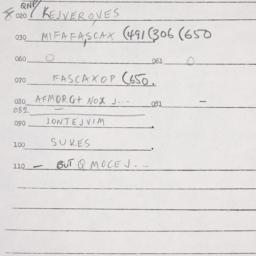 QNP
8 020 KEJVERQVES
030 MIFAFASCAX (491(306(650
060 0 061 0
070 FASCAXOP (650.
080 AFMORG+ NOX J... 081 -
085
090 JONTEJVIM.
100 SUKES.
110 - BUT Q MOCEJ...